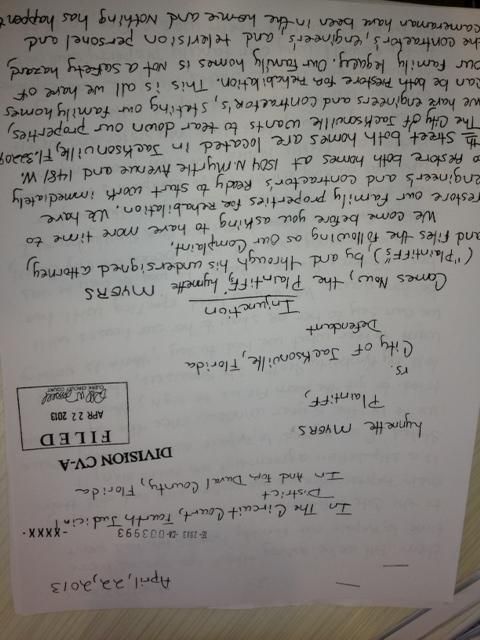 April, 22, 2013
16-2013-CA-003993-XXXX-
In The Circuit Court, Fourth Judicial
District
In And For Duval County, Florida
DIVISION CV-A
FILED
APR 22 2013
CLERK CIRCUIT COURT
Lynette MYERS
Plaintiff,
vs.
City OF Jacksonville, Florida
Defendant
Injunction
Comes Now, the Plaintiff, Lynette MYERS
("Plaintiff's) by and through his undersigned attorney,
and Files the following as Our Complaint.
We come before you asking to have more time to
restore our family properties for Rehabilation. We have
engineer's and contractor's Ready to start work immediately
to Restore both homes at 1504 N. Myrtle Avenue and 1481 W.
Street both homes are located in Jacksonville, Fl. 32209
The City of Jacksonville wants to tear down our properties,
we have engineers and contractor's, stating our family homes
can be both be Restore for Rehabilation. This is all we have of
our family legacy. Our family homes is not a safety hazard
the contractor's, engineer's, and television personel and
cameraman have been in the home and Nothing has happened